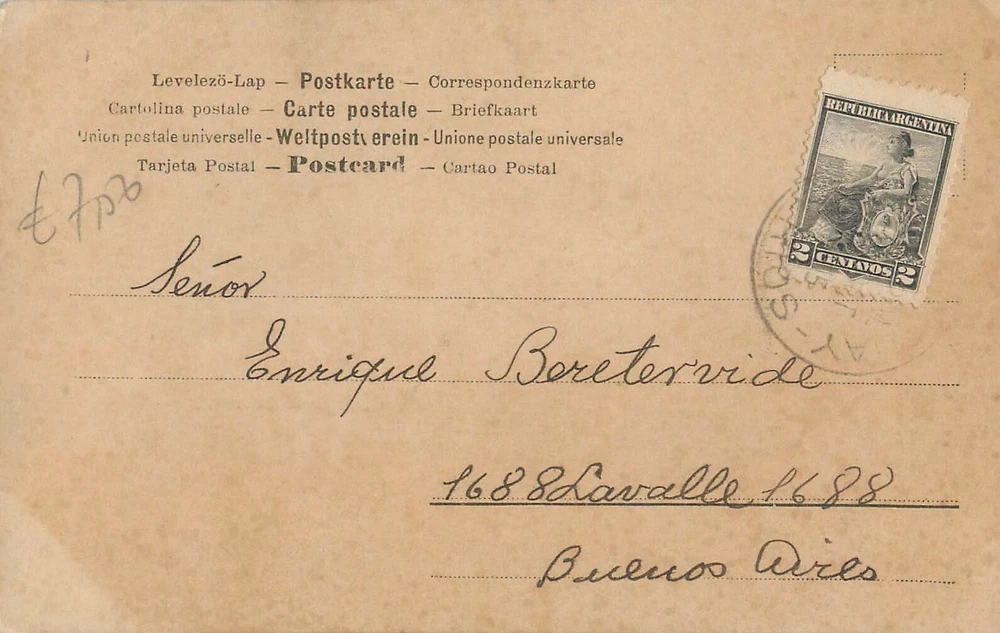 Levelezö-Lap — Postkarte — Correspondenzkarte
Cartolina postale — Carte postale — Briefkaart
Union postale universelle - Weltpostverein - Unione postale universale
Tarjeta Postal — Postcard — Cartao Postal
REPUBLICA ARGENTINA
2 CENTAVOS 2
£7,00
Señor
Enrique Beretervide
1688 Lavalle 1688
Buenos Aires